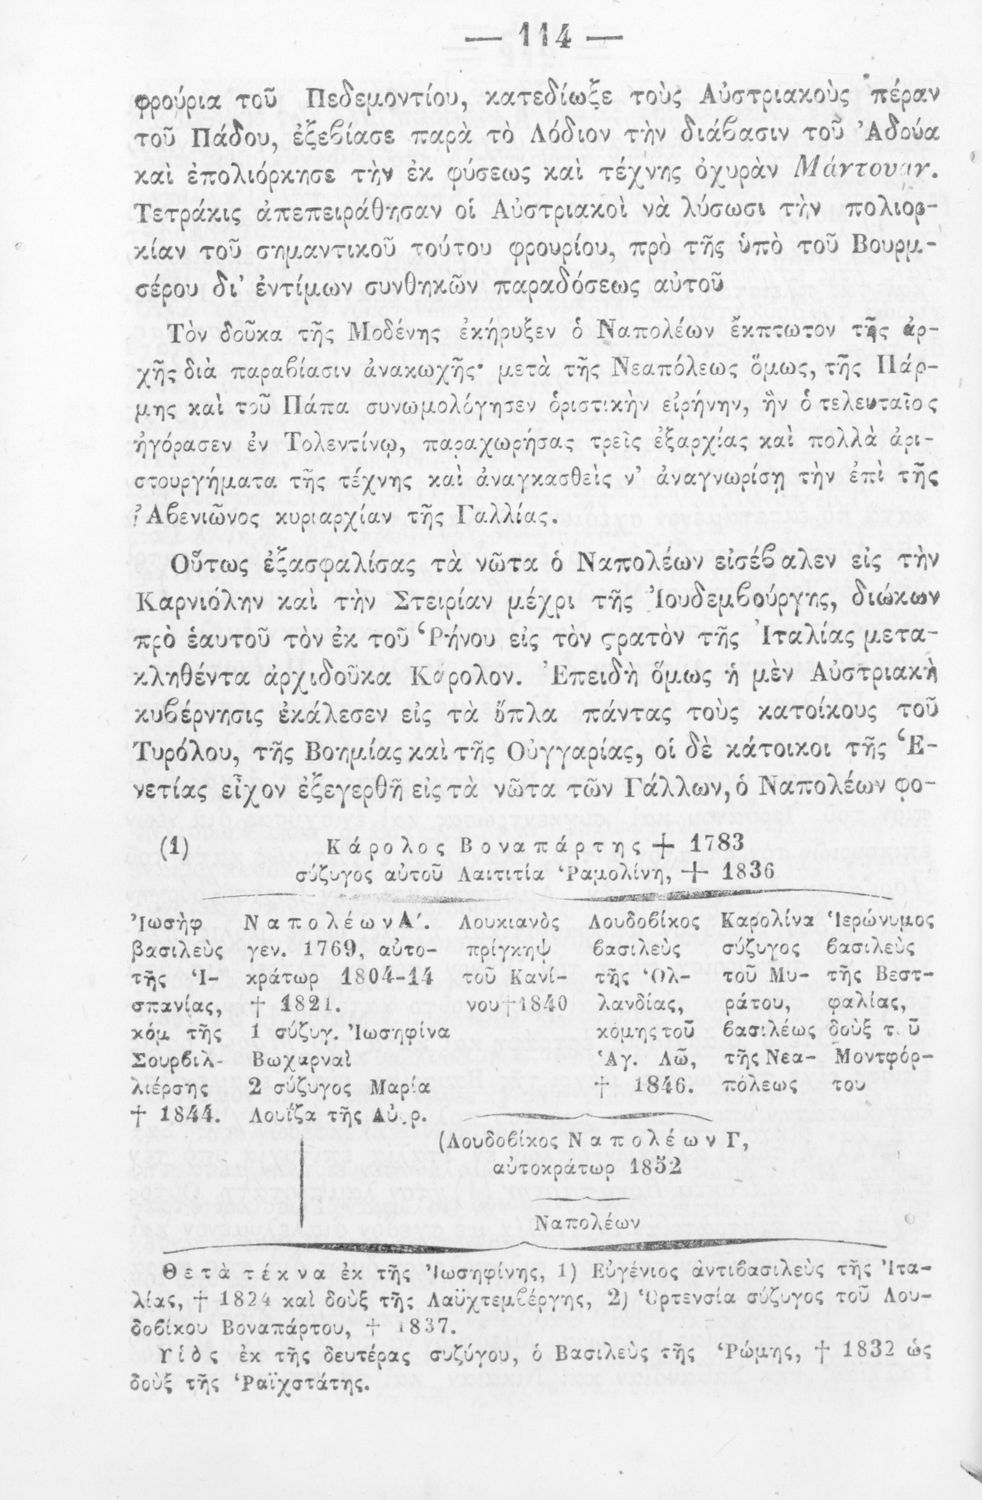 — 114 —
φρούρια τοῦ Πεδεμοντίου, κατεδίωξε τοὺς Αὐστριακοὺς πέραν
τοῦ Πάδου, ἐξεβίασε παρὰ τὸ Λόδιον τὴν διάβασιν τοῦ Ἀδούα
καὶ ἐπολιόρκησε τὴν ἐκ φύσεως καὶ τέχνης ὀχυρὰν Μάντουαν.
Τετράκις ἀπεπειράθησαν οἱ Αὐστριακοὶ νὰ λύσωσι τὴν πολιορ-
κίαν τοῦ σημαντικοῦ τούτου φρουρίου, πρὸ τῆς ὑπὸ τοῦ Βουρμ-
σέρου δι' ἐντίμων συνθηκῶν παραδόσεως αὐτοῦ
Τὸν δοῦκα τῆς Μοδένης ἐκήρυξεν ὁ Ναπολέων ἔκπτωτον τῆς ἀρ-
χῆς διὰ παραβίασιν ἀνακωχῆς· μετὰ τῆς Νεαπόλεως ὅμως, τῆς Πάρ-
μης καὶ τοῦ Πάπα συνωμολόγησεν ὁριστικὴν εἰρήνην, ἣν ὁ τελευταῖος
ἠγόρασεν ἐν Τολεντίνῳ, παραχωρήσας τρεῖς ἐξαρχίας καὶ πολλὰ ἀρι-
στουργήματα τῆς τέχνης καὶ ἀναγκασθεὶς ν' ἀναγνωρίσῃ τὴν ἐπὶ τῆς
Ἀβενιῶνος κυριαρχίαν τῆς Γαλλίας.
Οὕτως ἐξασφαλίσας τὰ νῶτα ὁ Ναπολέων εἰσέβαλεν εἰς τὴν
Καρνιόλην καὶ τὴν Στειρίαν μέχρι τῆς Ἰουδεμβούργης, διώκων
πρὸ ἑαυτοῦ τὸν ἐκ τοῦ Ῥήνου εἰς τὸν ϛρατὸν τῆς Ἰταλίας μετα-
κληθέντα ἀρχιδοῦκα Κάρολον. Ἐπειδὴ ὅμως ἡ μὲν Αὐστριακὴ
κυβέρνησις ἐκάλεσεν εἰς τὰ ὅπλα πάντας τοὺς κατοίκους τοῦ
Τυρόλου, τῆς Βοημίας καὶ τῆς Οὑγγαρίας, οἱ δὲ κάτοικοι τῆς Ἑ-
νετίας εἶχον ἐξεγερθῆ εἰς τὰ νῶτα τῶν Γάλλων, ὁ Ναπολέων φο-
(1) Κάρολος Βοναπάρτης † 1783
σύζυγος αὐτοῦ Λαιτιτία Ῥαμολίνη, † 1836
Ἰωσὴφ
βασιλεὺς
τῆς Ἱ-
σπανίας,
κόμ τῆς
Σουρβιλ-
λιέρσης
† 1844.
Ναπολέων Α΄.
γεν. 1769, αὐτο-
κράτωρ 1804-14
† 1821.
1 σύζυγ. Ἰωσηφίνα
Βωχαρναὶ
2 σύζυγος Μαρία
Λουΐζα τῆς Αὐρ.
Λουκιανὸς
πρίγκηψ
τοῦ Κανί-
νου † 1840
Λουδοβίκος
βασιλεὺς
τῆς Ὁλ-
λανδίας,
κόμης τοῦ
Ἁγ. Λῶ,
† 1846.
Καρολίνα
σύζυγος
τοῦ Μυ-
ράτου,
βασιλέως
τῆς Νεα-
πόλεως
Ἱερώνυμος
βασιλεὺς
τῆς Βεστ-
φαλίας,
δοὺξ τοῦ
Μοντφόρ-
του
(Λουδοβίκος Ναπολέων Γ,
αὐτοκράτωρ 1852
Ναπολέων
Θετὰ τέκνα ἐκ τῆς Ἰωσηφίνης, 1) Εὐγένιος ἀντιβασιλεὺς τῆς Ἰτα-
λίας, † 1824 καὶ δοὺξ τῆς Λαϋχτεμβέργης, 2) Ὁρτενσία σύζυγος τοῦ Λου-
δοβίκου Βοναπάρτου, † 1837.
Υἱὸς ἐκ τῆς δευτέρας συζύγου, ὁ Βασιλεὺς τῆς Ῥώμης, † 1832 ὡς
δοὺξ τῆς Ῥαϊχστάτης.